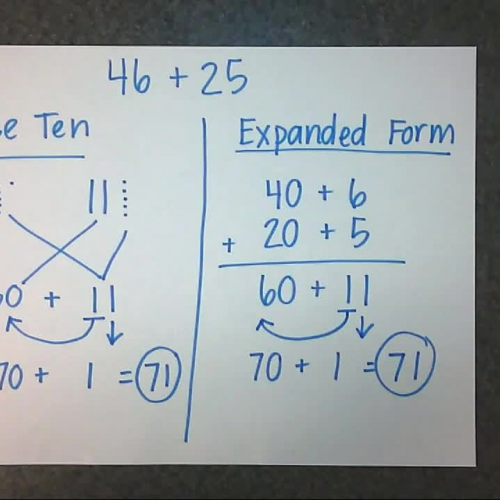 46 + 25
Ten
60 + 11
70 + 1 = 71
Expanded Form
40 + 6
+ 20 + 5
60 + 11
70 + 1 = 71